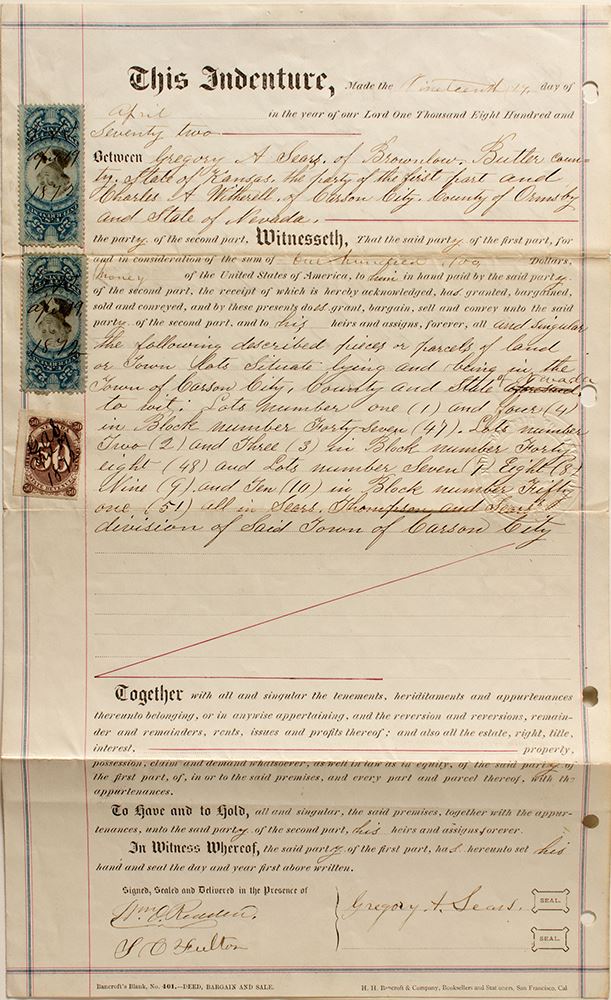 This Indenture, Made the Nineteenth 19, day of
April in the year of our Lord One Thousand Eight Hundred and
Seventy two
Between Gregory A Sears, of Brownlow, Butler coun-
ty, State of Kansas, the party of the first part and
Charles A Witherell, of Carson City, County of Ormsby
and State of Nevada.
the party of the second part, Witnesseth, That the said party of the first part, for
and in consideration of the sum of One hundred Dollars,
money of the United States of America, to him in hand paid by the said party
of the second part, the receipt of which is hereby acknowledged, has granted, bargained,
sold and conveyed, and by these presents does grant, bargain, sell and convey unto the said
party of the second part, and to his heirs and assigns, forever, all and singular
the following described pieces or parcels of land
or Town Lots Situate lying and being in the
Town of Carson City, County and State of Nevada
to wit: Lots number one (1) and four (4)
in Block number Forty Seven (47). Lots number
Two (2) and Three (3) in Block number Forty
eight (48) and Lots number Seven (7) Eight (8)
Nine (9) and Ten (10) in Block number Fifty
one (51) all in Sears, Thompson and Sears
division of Said Town of Carson City
Together with all and singular the tenements, heriditaments and appurtenances
thereunto belonging, or in anywise appertaining, and the reversion and reversions, remain-
der and remainders, rents, issues and profits thereof; and also all the estate, right, title,
interest, property,
possession, claim and demand whatsoever, as well in law as in equity, of the said party of
the first part, of, in or to the said premises, and every part and parcel thereof, with the
appurtenances.
To Have and to Hold, all and singular, the said premises, together with the appur-
tenances, unto the said party of the second part, his heirs and assigns forever.
In Witness Whereof, the said party of the first part, has hereunto set his
hand and seal the day and year first above written.
Signed, Sealed and Delivered in the Presence of
Gregory A. Sears. SEAL.
S C Fulton SEAL.
Bancroft's Blank, No. 401.—DEED, BARGAIN AND SALE. H. H. Bancroft & Company, Booksellers and Stationers, San Francisco, Cal